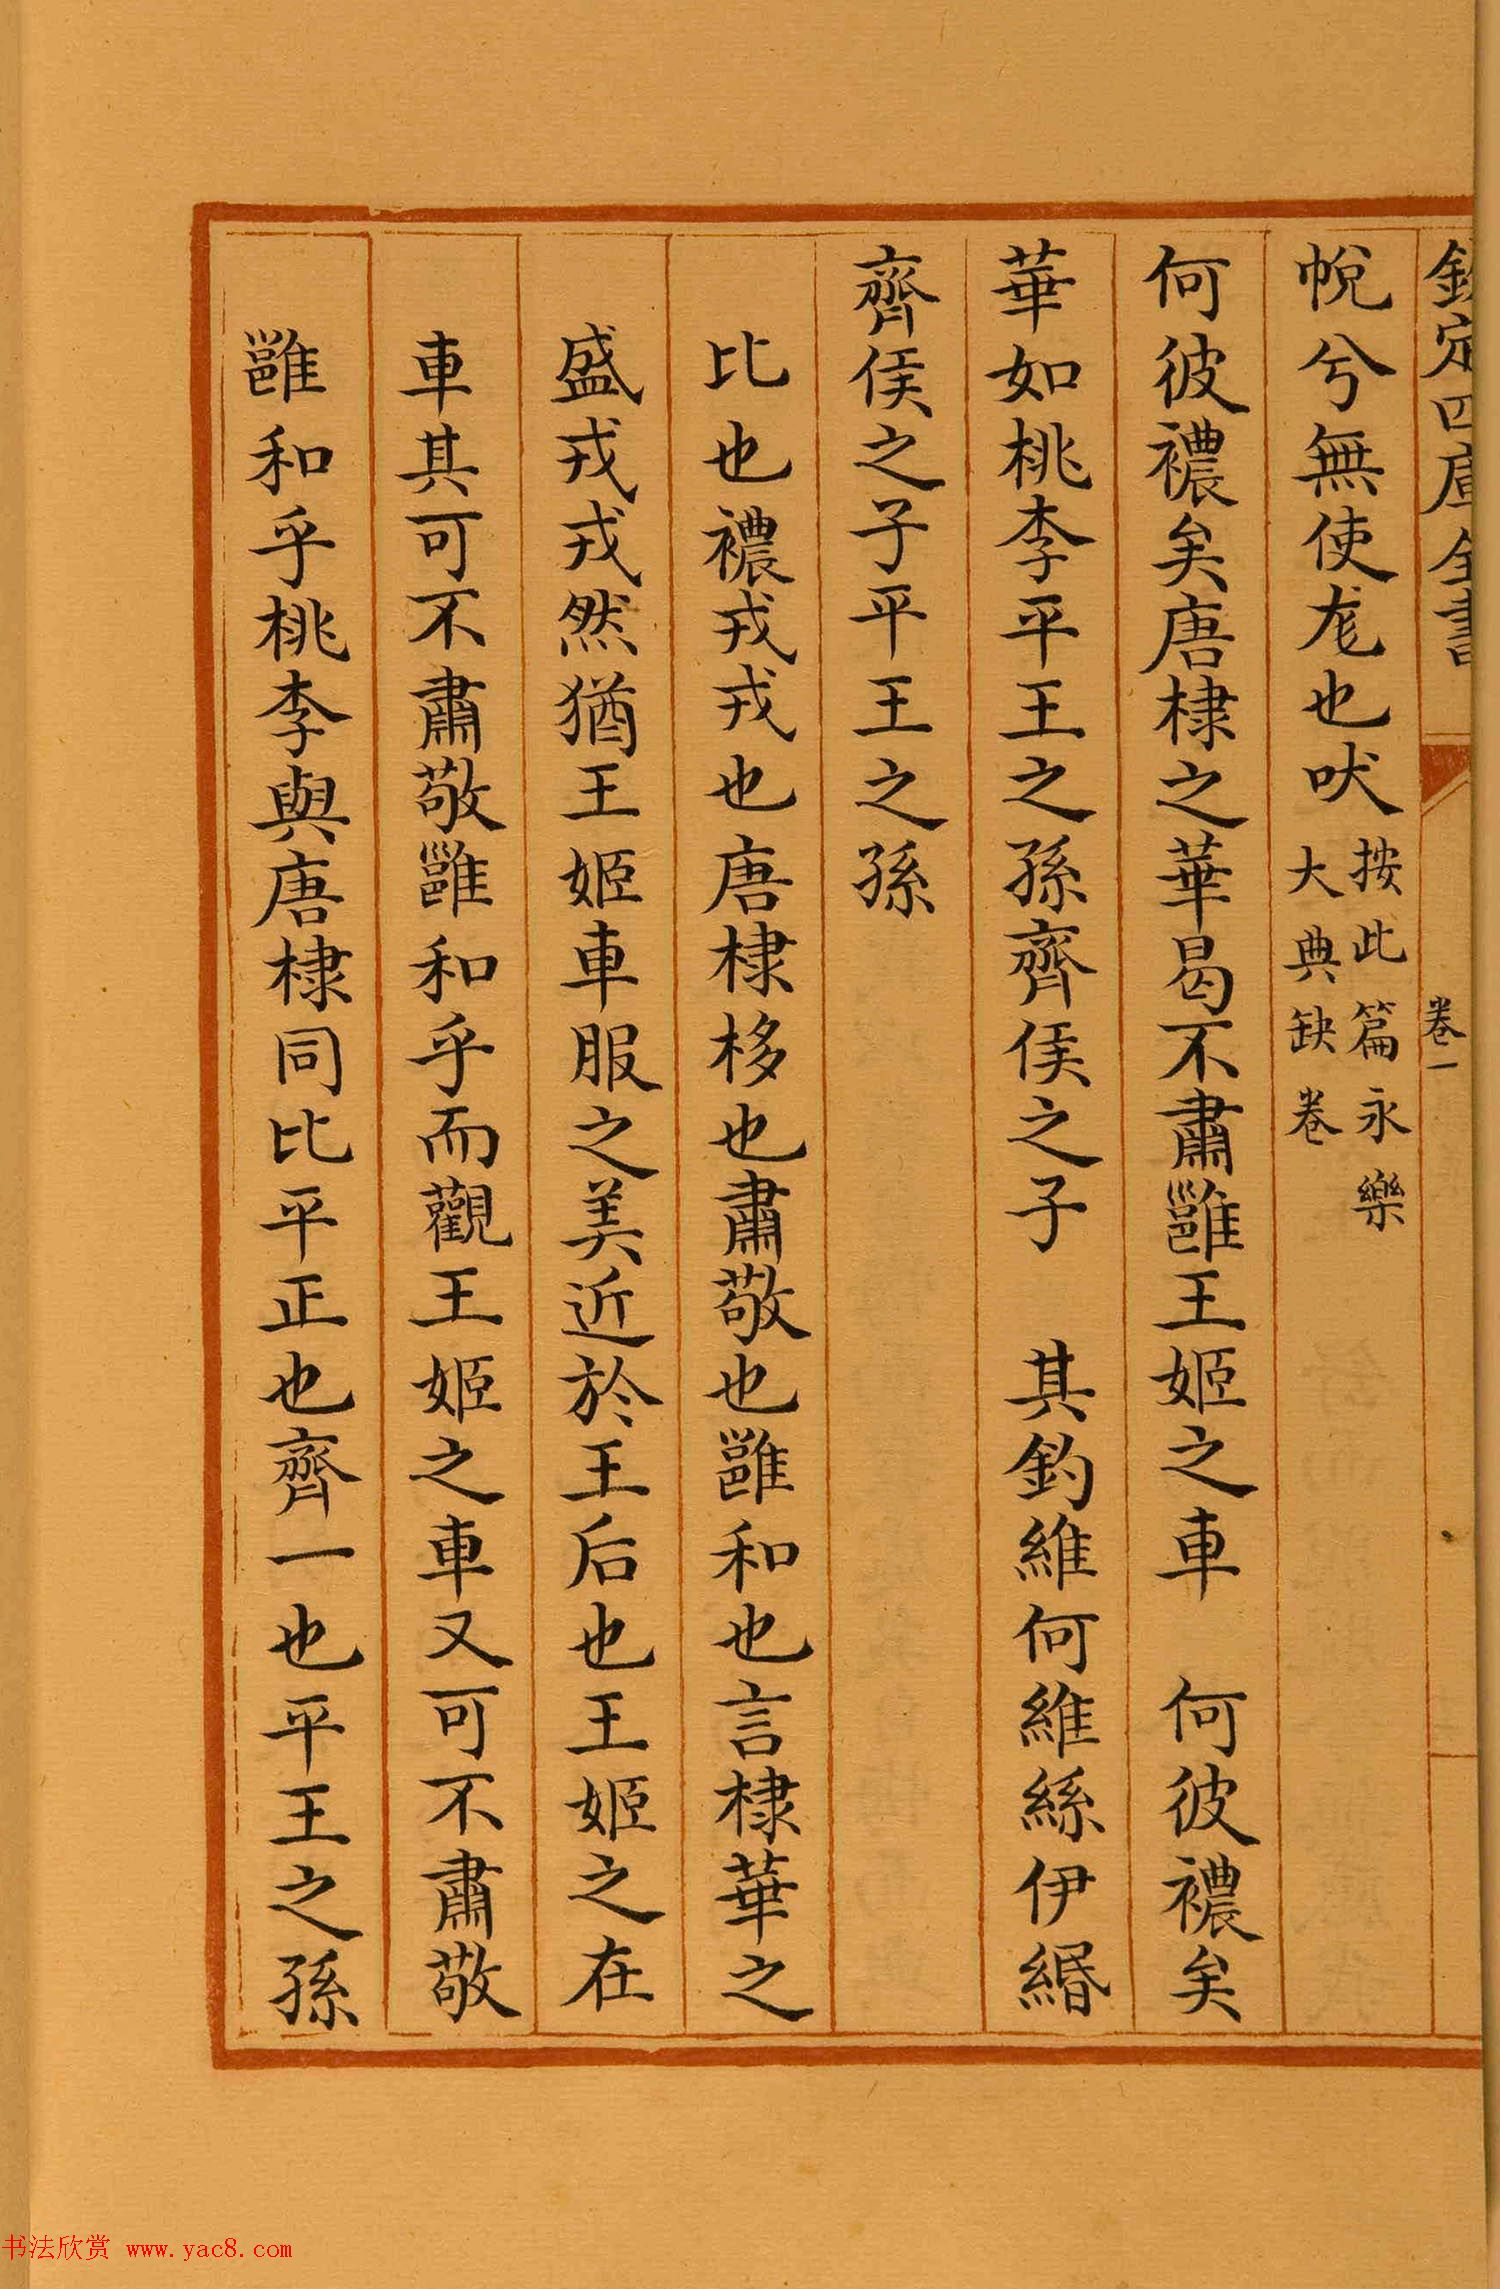 欽定四庫全書
卷一
帨兮無使尨也吠按此篇永樂
大典缺卷
何彼襛矣唐棣之華曷不肅雝王姬之車　何彼襛矣
華如桃李平王之孫齊侯之子　其釣維何維絲伊緡
齊侯之子平王之孫
比也襛戎戎也唐棣栘也肅敬也雝和也言棣華之
盛戎戎然猶王姬車服之美近於王后也王姬之在
車其可不肅敬雝和乎而觀王姬之車又可不肅敬
雝和乎桃李與唐棣同比平正也齊一也平王之孫
书法欣赏 www.yac8.com